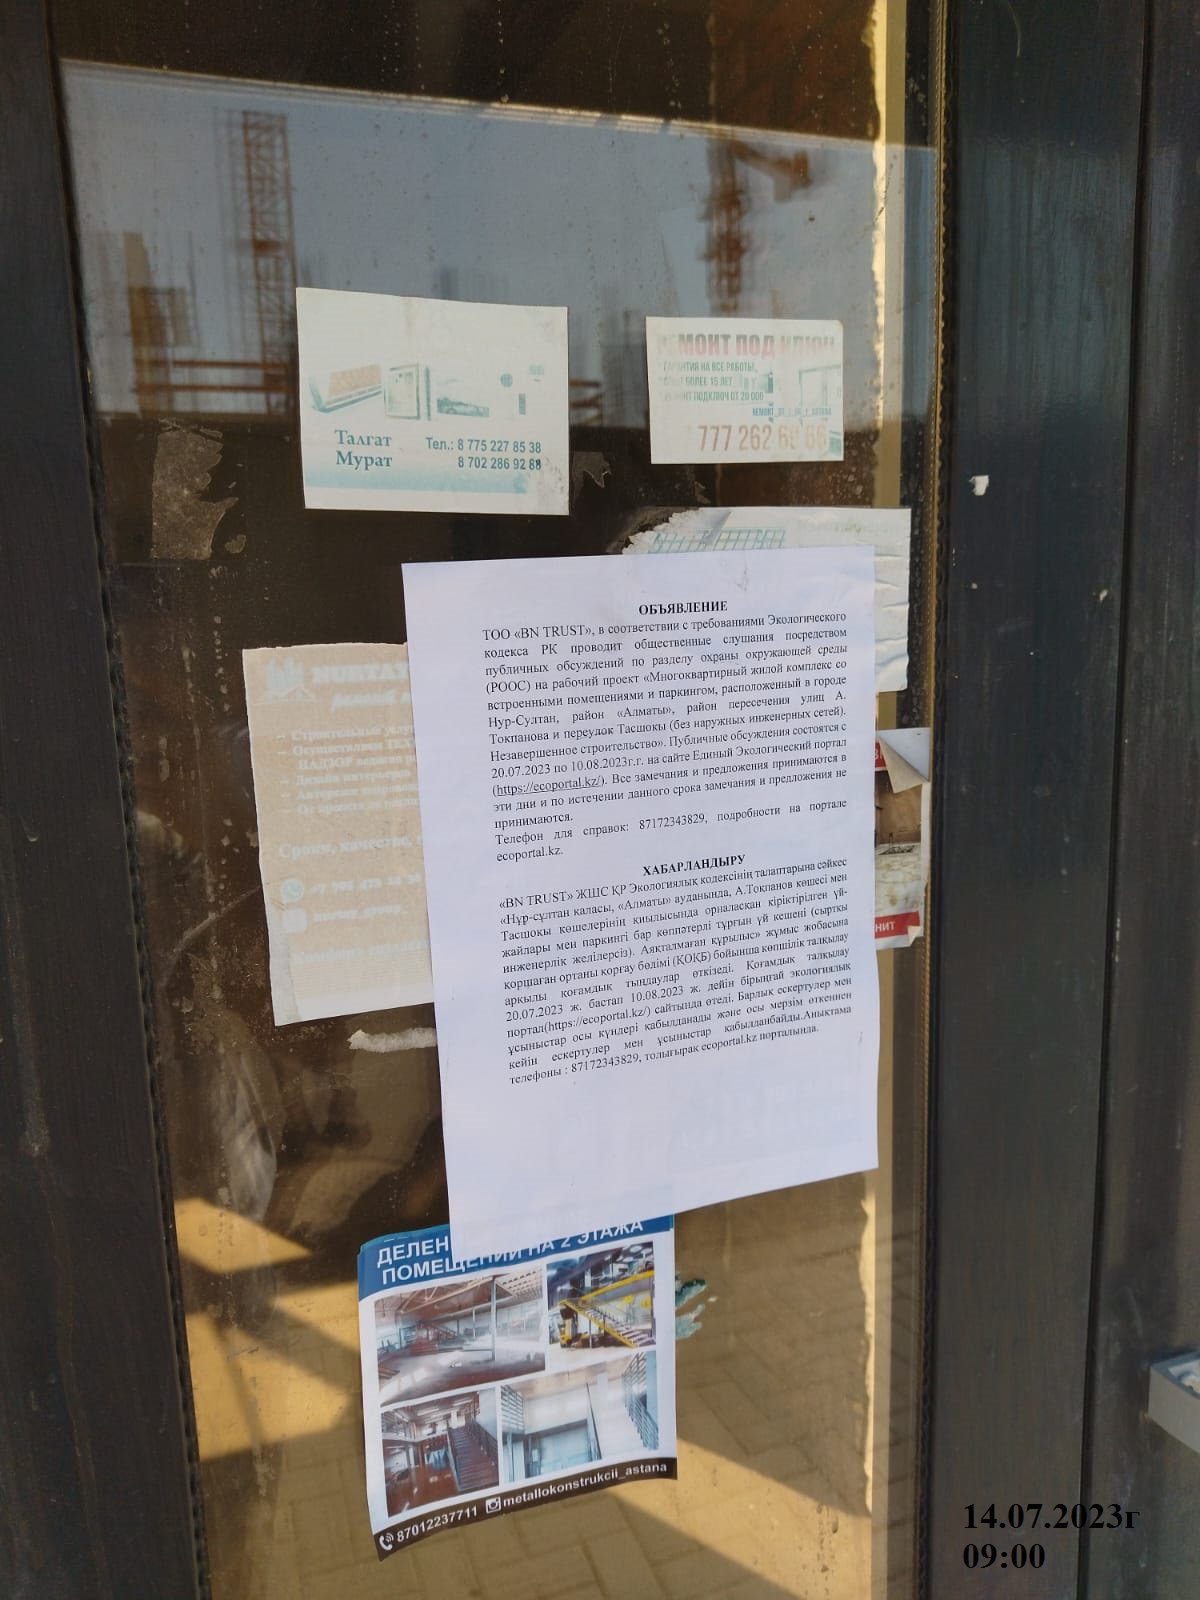 Талгат
Мурат
Тел.: 8 775 227 85 38
8 702 286 92 88
РЕМОНТ ПОД КЛЮЧ
ГАРАНТИЯ НА ВСЕ РАБОТЫ
БОЛЕЕ 15 ЛЕТ
РЕМОНТ ПОДКЛЮЧ ОТ 20 000
777 262
ОБЪЯВЛЕНИЕ
ТОО «BN TRUST», в соответствии с требованиями Экологического
кодекса РК проводит общественные слушания посредством
публичных обсуждений по разделу охраны окружающей среды
(РООС) на рабочий проект «Многоквартирный жилой комплекс со
встроенными помещениями и паркингом, расположенный в городе
Нур-Султан, район «Алматы», район пересечения улиц А.
Токпанова и переулок Тасшокы (без наружных инженерных сетей).
Незавершенное строительство». Публичные обсуждения состоятся с
20.07.2023 по 10.08.2023г.г. на сайте Единый Экологический портал
(https://ecoportal.kz/). Все замечания и предложения принимаются в
эти дни и по истечении данного срока замечания и предложения не
принимаются.
Телефон для справок: 87172343829, подробности на портале
ecoportal.kz.
ХАБАРЛАНДЫРУ
«BN TRUST» ЖШС ҚР Экологиялық кодексінің талаптарына сәйкес
«Нұр-сұлтан қаласы, «Алматы» ауданында, А.Тоқпанов көшесі мен
Тасшокы көшелерінің қиылысында орналасқан кіріктірілген үй-
жайлары мен паркингі бар көппәтерлі тұрғын үй кешені (сыртқы
инженерлік желілерсіз). Аяқталмаған құрылыс» жұмыс жобасына
қоршаған ортаны қорғау бөлімі (ҚОҚБ) бойынша көпшілік талқылау
арқылы қоғамдық тыңдаулар өткізеді. Қоғамдық талқылау
20.07.2023 ж. бастап 10.08.2023 ж. дейін бірыңғай экологиялық
портал(https://ecoportal.kz/) сайтында өтеді. Барлық ескертулер мен
ұсыныстар осы күндері қабылданады және осы мерзім өткеннен
кейін ескертулер мен ұсыныстар қабылданбайды.Анықтама
телефоны : 87172343829, толығырақ ecoportal.kz порталында.
NURTAY
Строительные
Осуществляем ТЕХ
НАДЗОР
Дизайн интерьера
Сроки, качество,
НИТ
ДЕЛЕН
ПОМЕЩЕНИЙ НА 2 ЭТАЖА
87012237711 metallokonstrukcii_astana
14.07.2023г
09:00